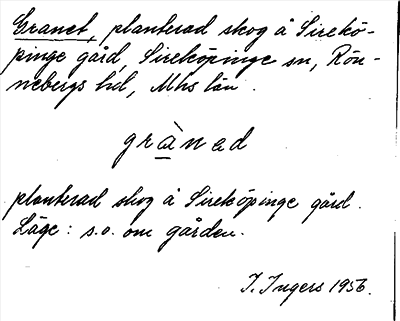 Granet, planterad skog å Sirekö-
pinge gård, Sireköpinge sn, Rön-
nebergs hd, Mhs län.
grà̱nad
planterad skog å Sireköpinge gård.
Läge: s.o. om gården.
I. Ingers 1956.